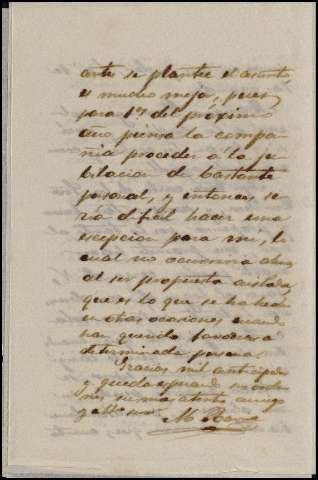 antes se plantée el asunto,
es mucho mejor, pues
para 1º del próximo
año piensa la compa-
ñia proceder á la ju-
bilacion de bastante
personal, y entonces se-
ría dificil hacer una
escepcion para mi, lo
cual no ocurriria ahora
al ser propuesta aislada,
que es lo que se ha hecho
en otras ocasiones cuando
han querido favorecer á
determinada persona.
Gracias mil anticipadas
y queda esperando sus órde-
nes su mas atento amigo
M.